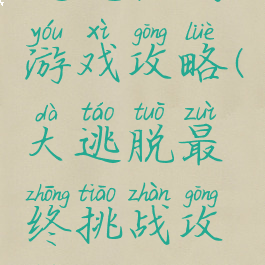 yóu xì gōng lüè
游戏攻略(
dà táo tuō zuì
大逃脱最
zhōng tiāo zhàn gōng
终挑战攻